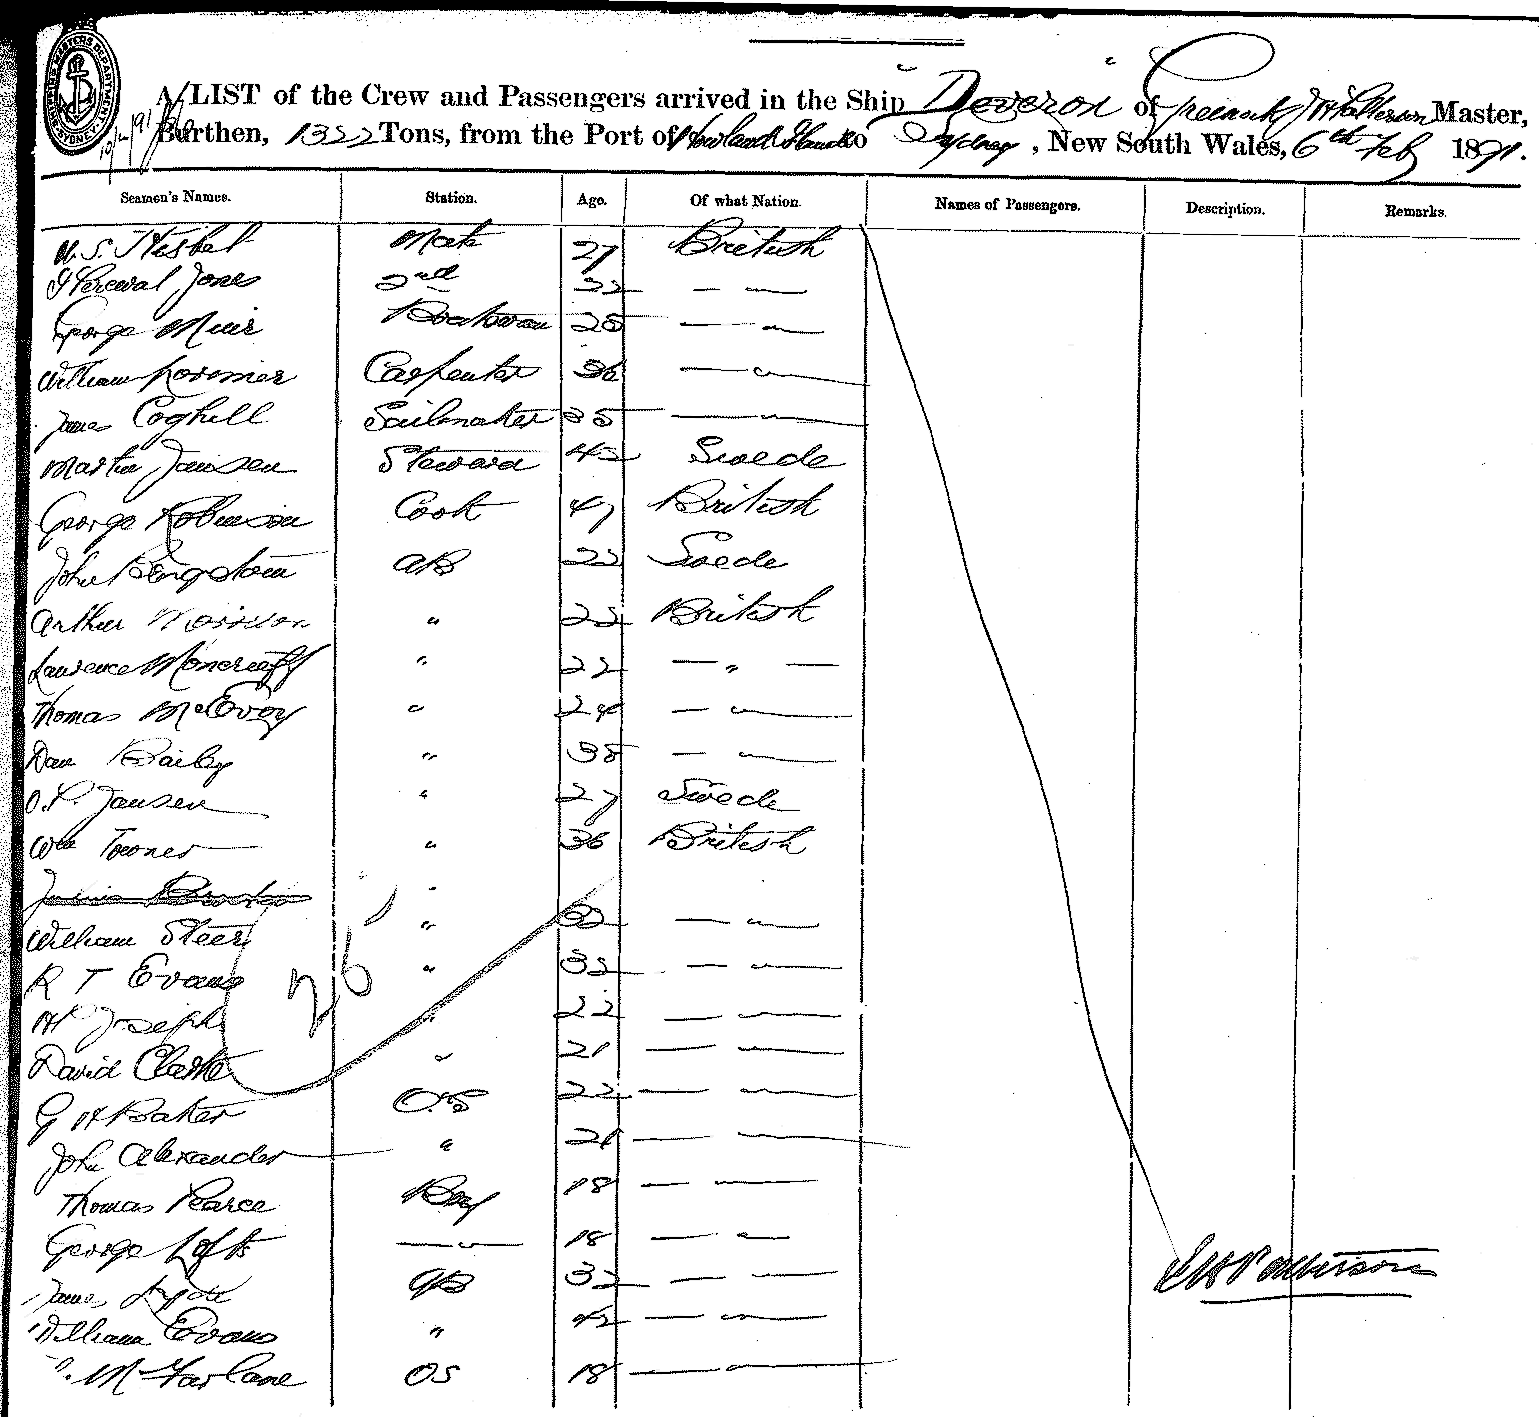 A LIST of the Crew and Passengers arrived in the Ship Deveron of Greenock, J H Patterson Master,
Burthen, 1322 Tons, from the Port of Howland Island to Sydney, New South Wales, 6th Feb 1891.
Seamen's Names. Station. Age. Of what Nation. Names of Passengers. Description. Remarks.
Mate 27 British
Percival Jones 2nd 32 — —
George Muir Boatswain 25 — „ —
William Carpenter 36 — „ —
James Coghill Sailmaker 35 — „ —
Martin Jansen Steward 42 Swede
George Robinson Cook 47 British
John AB 22 Swede
Arthur Morrison " 22 British
Laurence Moncrieff " 22 — „ —
Thomas McEvoy " 24 — „ —
Dan Bailey " 38 — „ —
O.P. Jansen " 27 Swede
Wm Towner " 36 British
"
William Steer " — „ —
R T Evans " 32 — „ —
H Joseph " 22 — „ —
David Clarke " 21 — „ —
G H Baker OS 22 — „ —
John Alexander " 21 — „ —
Thomas Pearce Boy 18 — „ —
George Lofts — „ — 18 — „ —
James AB 32 — —
William Evans " 42 — „ —
McFarlane OS 18 — „ —
26
J H Patterson